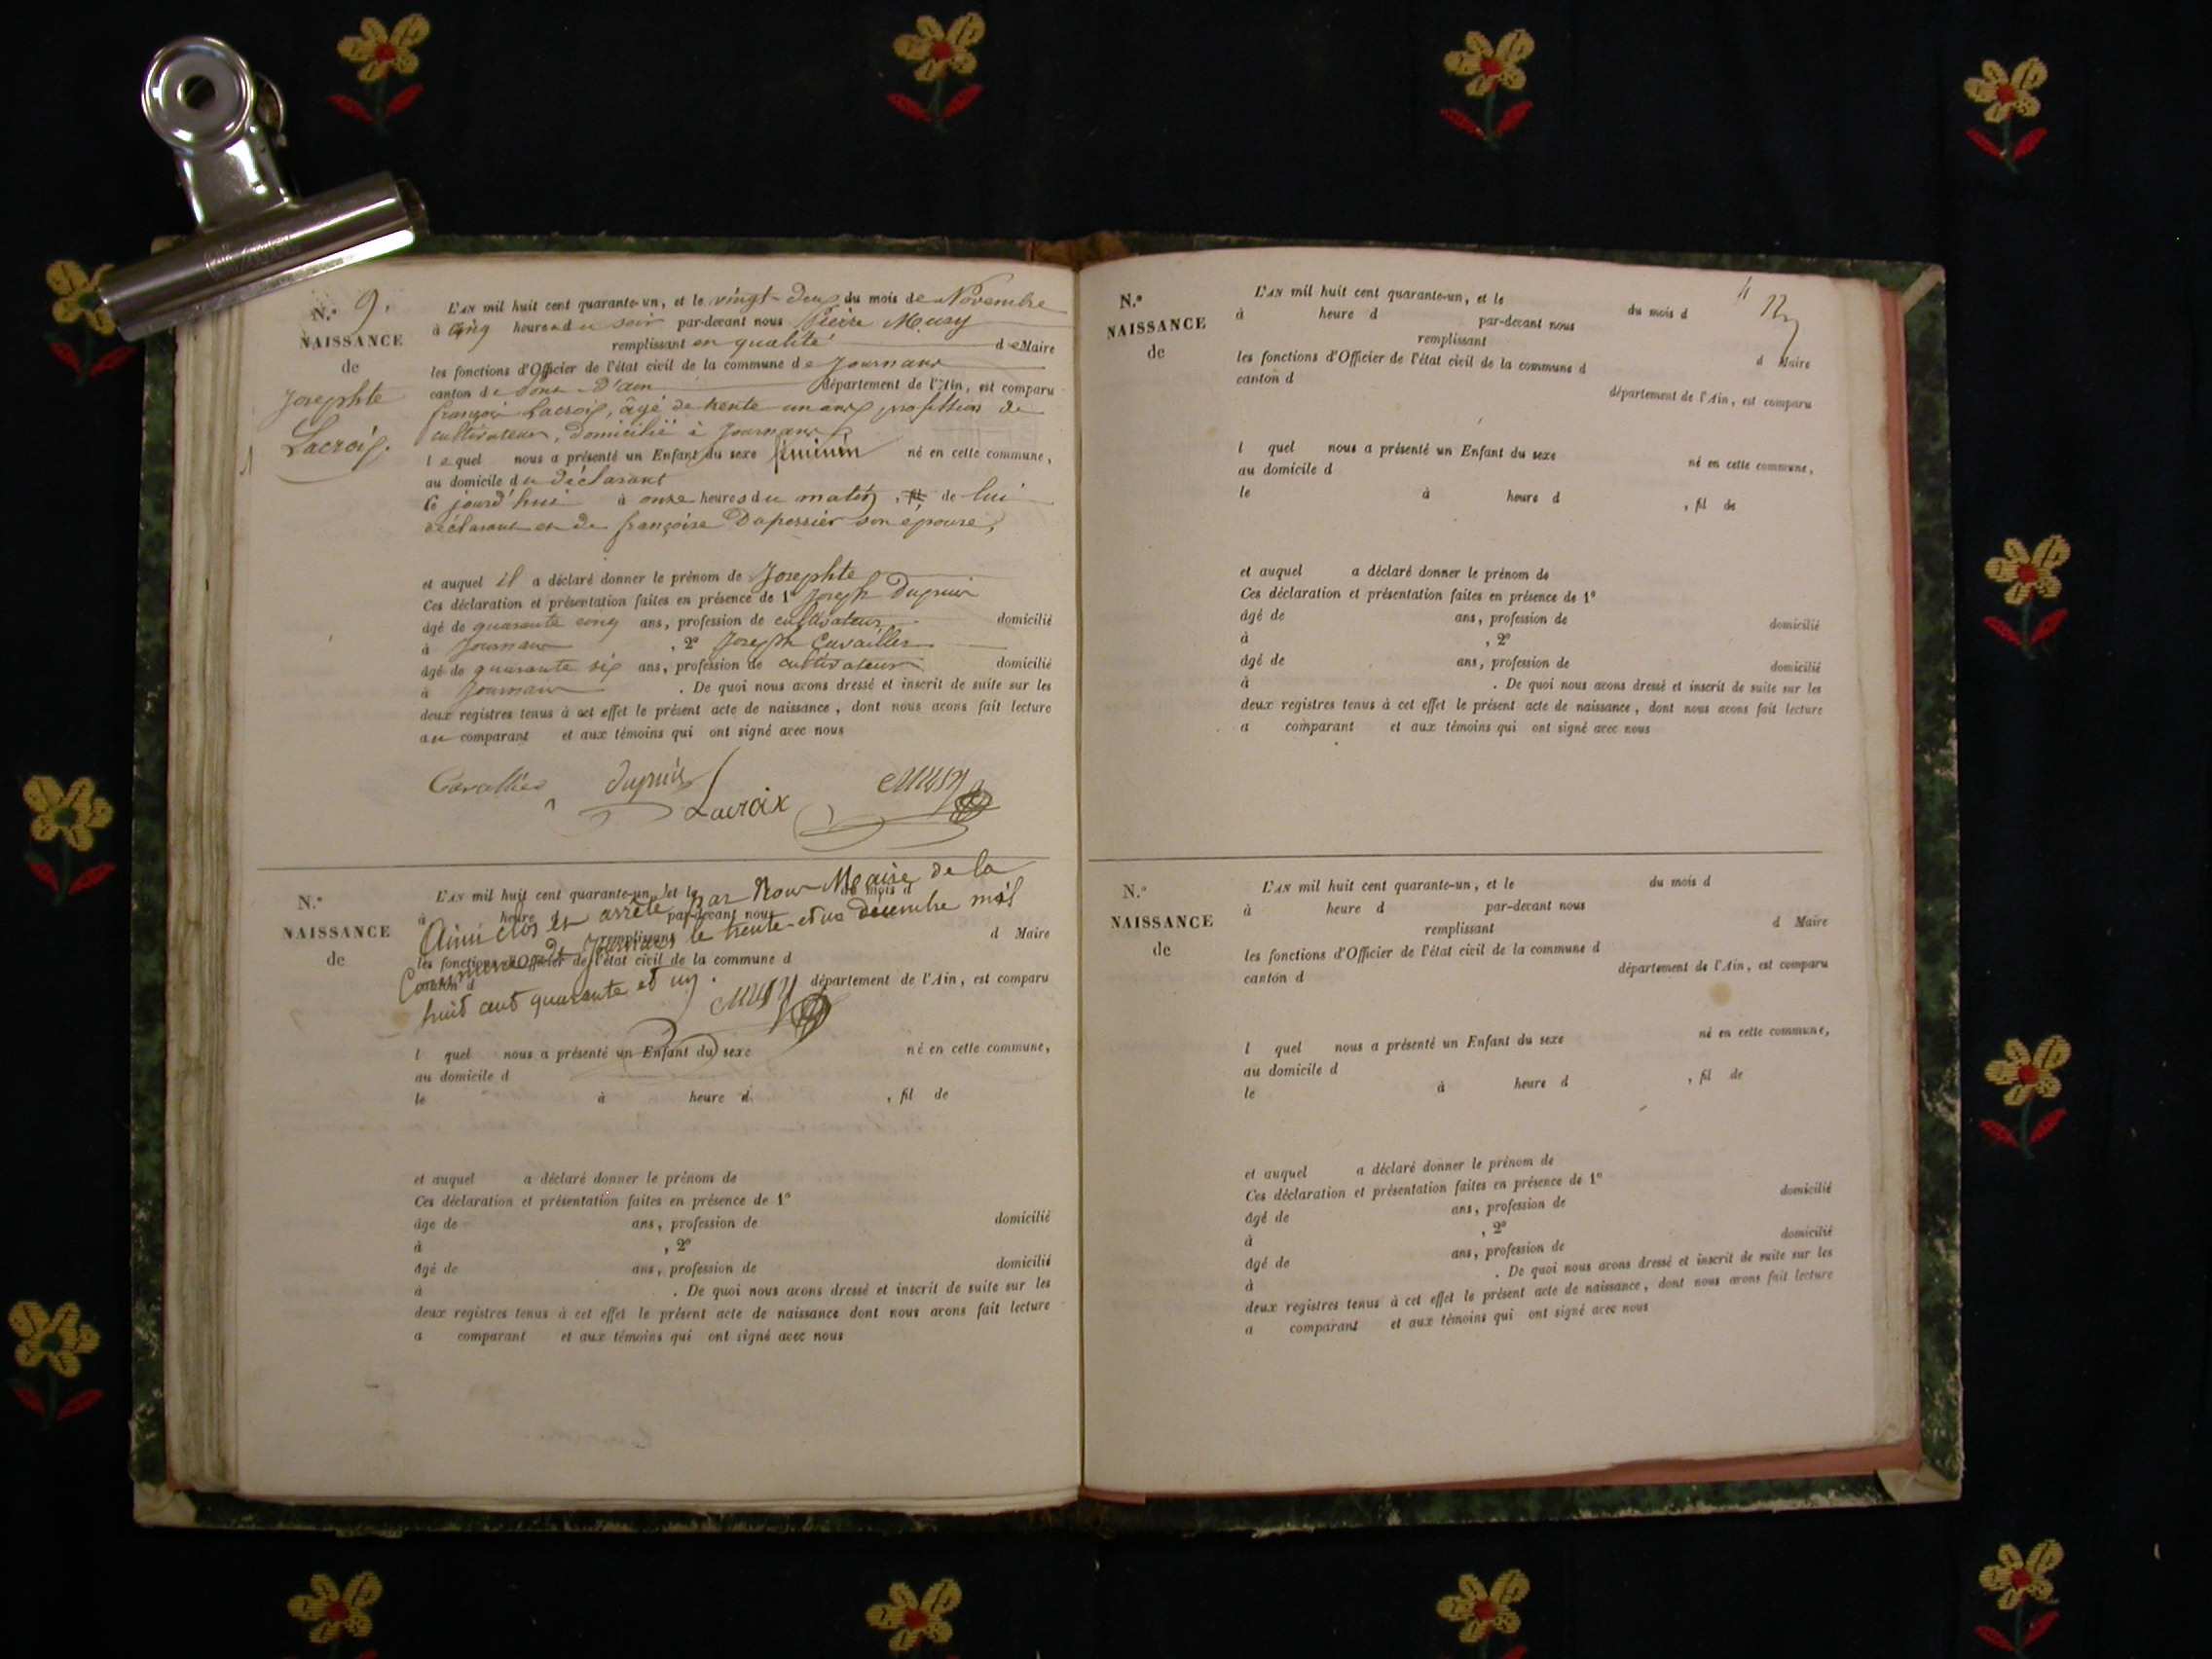 N.º 9.
NAISSANCE
de
Josephte
Lacroix.
L'AN mil huit cent quarante-un, et le vingt-deux du mois de Novembre
à cinq heures du soir par-devant nous Pierre Musy
remplissant en qualité de Maire
les fonctions d'Officier de l'état civil de la commune de Journans
canton de Pont-d'ain département de l'Ain, est comparu
françois Lacroix, âgé de trente un ans, profession de
cultivateur, domicilié à Journans
lequel nous a présenté un Enfant du sexe féminin né en cette commune,
au domicile du déclarant
Ce jourd'hui à onze heures du matin, de lui
déclarant et de françoise son épouse,
et auquel il a déclaré donner le prénom de Josephte
Ces déclaration et présentation faites en présence de 1º Joseph Dupuis
âgé de quarante cinq ans, profession de cultivateur domicilié
à Journans, 2º Joseph Cavaillier
âgé de quarante six ans, profession de cultivateur domicilié
à Journans. De quoi nous avons dressé et inscrit de suite sur les
deux registres tenus à cet effet le présent acte de naissance, dont nous avons fait lecture
au comparant et aux témoins qui ont signé avec nous
Cavaillier dupuis Lacroix Musy
N.º
NAISSANCE
de
L'AN mil huit cent quarante-un, et le du mois d
à heure d par-devant nous
remplissant d Maire
les fonctions d'Officier de l'état civil de la commune d
canton d département de l'Ain, est comparu
Ainsi clos et arrêté par Nous Maire de la
Commune de Journans le trente-et un décembre mil
huit cent quarante et un.
Musy
l quel nous a présenté un Enfant du sexe né en cette commune,
au domicile d
le à heure d , fil de
et auquel a déclaré donner le prénom de
Ces déclaration et présentation faites en présence de 1º
âge de ans, profession de domicilié
à , 2º
âgé de ans, profession de domicilié
à . De quoi nous avons dressé et inscrit de suite sur les
deux registres tenus à cet effet le présent acte de naissance dont nous avons fait lecture
a comparant et aux témoins qui ont signé avec nous
N.º
NAISSANCE
de
L'AN mil huit cent quarante-un, et le du mois d
à heure d par-devant nous
remplissant d Maire
les fonctions d'Officier de l'état civil de la commune d
canton d département de l'Ain, est comparu
l quel nous a présenté un Enfant du sexe né en cette commune,
au domicile d
le à heure d , fil de
et auquel a déclaré donner le prénom de
Ces déclaration et présentation faites en présence de 1º
âgé de ans, profession de domicilié
à , 2º
âgé de ans, profession de domicilié
à . De quoi nous avons dressé et inscrit de suite sur les
deux registres tenus à cet effet le présent acte de naissance, dont nous avons fait lecture
a comparant et aux témoins qui ont signé avec nous
N.º
NAISSANCE
de
L'AN mil huit cent quarante-un, et le du mois d
à heure d par-devant nous
remplissant d Maire
les fonctions d'Officier de l'état civil de la commune d
canton d département de l'Ain, est comparu
l quel nous a présenté un Enfant du sexe né en cette commune,
au domicile d
le à heure d , fil de
et auquel a déclaré donner le prénom de
Ces déclaration et présentation faites en présence de 1º
âgé de ans, profession de domicilié
à , 2º
âgé de ans, profession de domicilié
à . De quoi nous avons dressé et inscrit de suite sur les
deux registres tenus à cet effet le présent acte de naissance, dont nous avons fait lecture
a comparant et aux témoins qui ont signé avec nous